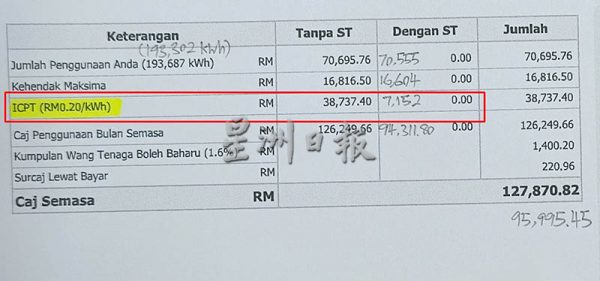 Keterangan Tanpa ST Dengan ST Jumlah
(193,302 kWh)
Jumlah Penggunaan Anda (193,687 kWh) RM 70,695.76 70,555 0.00 70,695.76
Kehendak Maksima RM 16,816.50 16,604 0.00 16,816.50
ICPT (RM0.20/kWh) RM 38,737.40 7,152 0.00 38,737.40
Caj Penggunaan Bulan Semasa RM 126,249.66 94,311.80 0.00 126,249.66
Kumpulan Wang Tenaga Boleh Baharu (1.6% RM 1,400.20
Surcaj Lewat Bayar RM 220.96
Caj Semasa RM 127,870.82
95,995.45
星洲日報